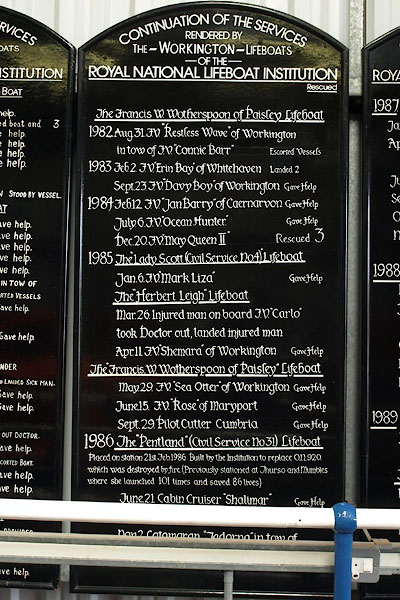 CONTINUATION OF THE SERVICES
RENDERED BY
THE-WORKINGTON-LIFEBOATS
-OF THE-
ROYAL NATIONAL LIFEBOAT INSTITUTION
Rescued
The Francis W. Wotherspoon of Paisley Lifeboat
1982 Aug.31. F.V. "Restless Wave" of Workington
in tow of F.V. "Connie Barr" Escorted Vessels
1983 Feb.2. F.V. "Erin Bay" of Whitehaven Landed 2
Sept.23. F.V. "Davy Boy" of Workington Gave Help
1984 Feb.12. F.V. "Jan Barry" of Caernarvon Gave Help
July 6. F.V. "Ocean Hunter" Gave Help
Dec.20. F.V. "May Queen II" Rescued 3
1985 The Lady Scott (Civil Service No4) Lifeboat
Jan.6. F.V. "Mark Liza" Gave Help
The "Herbert Leigh" Lifeboat
Mar.26. Injured man on board F.V. "Carlo"
took Doctor out, landed injured man
April.1. F.V. "Shemara" of Workington Gave Help
The "Francis W. Wotherspoon of Paisley" Lifeboat
May.29. F.V. "Sea Otter" of Workington Gave Help
June.15. F.V. "Rose" of Maryport Gave Help
Sept.29. Pilot Cutter Cumbria Gave Help
1986 The "Pentland" (Civil Service No31) Lifeboat
Placed on station 21st. Feb.1986. Built by the Institution to replace O.N.920
which was destroyed by fire (Previously stationed at Thurso and Mumbles
where she launched 101 times and saved 86 lives)
June.21. Cabin Cruiser "Shalimar" Gave Help
Nov.2. Catamaran "Tadorna" in tow of
SERVICES
BOATS
INSTITUTION
Boat
help.
ed boat and 3
ve help.
ve help.
ve help.
N STOOD BY VESSEL.
AT
ave help.
ave help.
ave help.
ave help.
ave help.
IN TOW OF
CORTED VESSELS
ave help.
Gave help.
UNDER
D LANDED SICK MAN.
Gave help.
Gave help.
OUT DOCTOR.
ve help.
CORTED BOAT.
ve help.
ve help.
ve help.
PROVIDED
ve help.
ROYA
1987
1988
1989